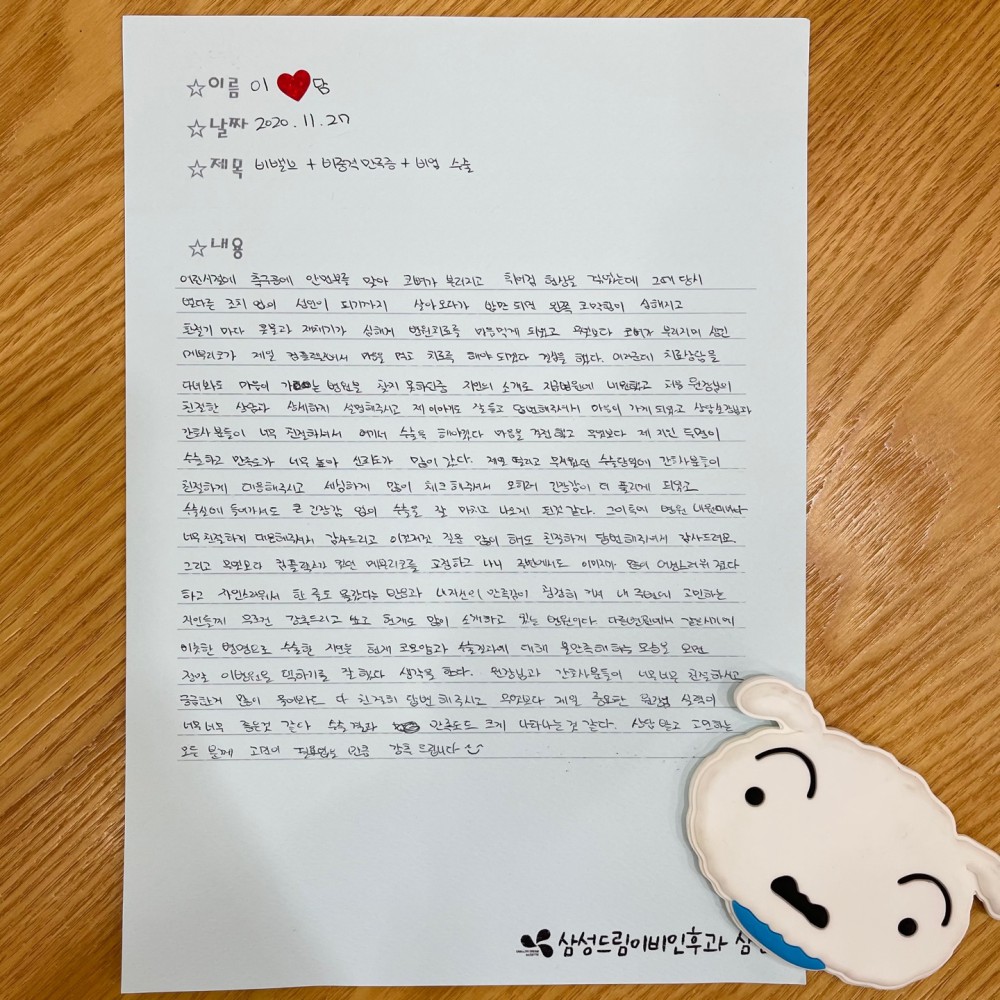 ☆이름 이 ♥ 맘
☆날짜 2020. 11. 27
☆제목 비밸브 + 비중격만곡증 + 비염 수술
☆내용
어린시절에 축구공에 안면부를 맞아 코뼈가 부러지고 휘어짐 현상을 겪었는데 그때 당시
별다른 조치 없이 성인이 되기까지 살아오다가 밤만 되면 왼쪽 코막힘이 심해지고
환절기 마다 콧물과 재채기가 심해져 병원치료를 마음먹게 되었고 무엇보다 코뼈가 부러지며 생긴
메부리코가 제일 컴플렉스여서 마음을 먹고 치료를 해야 되겠다 결심을 했다. 여러군데 치료상담을
다녀와도 마음이 가는 병원을 찾지 못하던중 지인의 소개로 지금병원에 내원했고 처음 원장님의
친절한 상담과 상세하게 설명해주시고 제 이야기도 잘 듣고 답변해주셔서 마음이 가게 되었고 상담실장님과
간호사분들이 너무 친절하셔서 여기서 수술을 해야겠다 마음을 결정 했고 무엇보다 제 지인 두명이
수술하고 만족도가 너무 높아 신뢰도가 많이 갔다. 제일 떨리고 무서웠던 수술당일에 간호사분들이
친절하게 대응해주시고 세심하게 많이 체크해주셔서 오히려 긴장감이 더 풀리게 되었고
수술실에 들어가서도 큰 긴장감 없이 수술을 잘 마치고 나오게 된것 같다. 그이후에 병원 내원때마다
너무 친절하게 대응해주셔서 감사드리고 이것저것 질문 많이 해도 친절하게 답변해주셔서 감사드려요.
그리고 무엇보다 컴플렉스가 였던 메부리코를 교정하고 나니 주변에서도 이미지가 많이 어썸스러워 졌다
하고 자연스러워서 한 줄도 몰랐다는 반응과 내자신의 만족감이 굉장히 커서 내 주변에 고민하는
지인들께 무조건 강추드리고 있고 현재도 많이 소개하고 있는 병원이다 다른병원에서 같은시기에
비슷한 병명으로 수술한 지인은 현재 코모양과 수술결과에 대해 불만족해하는 모습을 보면
정말 이병원을 택하기를 잘 했다 생각을 한다. 원장님과 간호사분들이 너무너무 친절하시고
궁금한게 많이 물어봐도 다 친절히 답변 해주시고 무엇보다 제일 중요한 원장님 실력이
너무너무 좋은것 같다 수술 결과 만족도도 크게 나타나는 것 같다. 상담 받고 고민하는
모든 분께 고민이 필요없는 만큼 강추 드립니다
삼성드림이비인후과